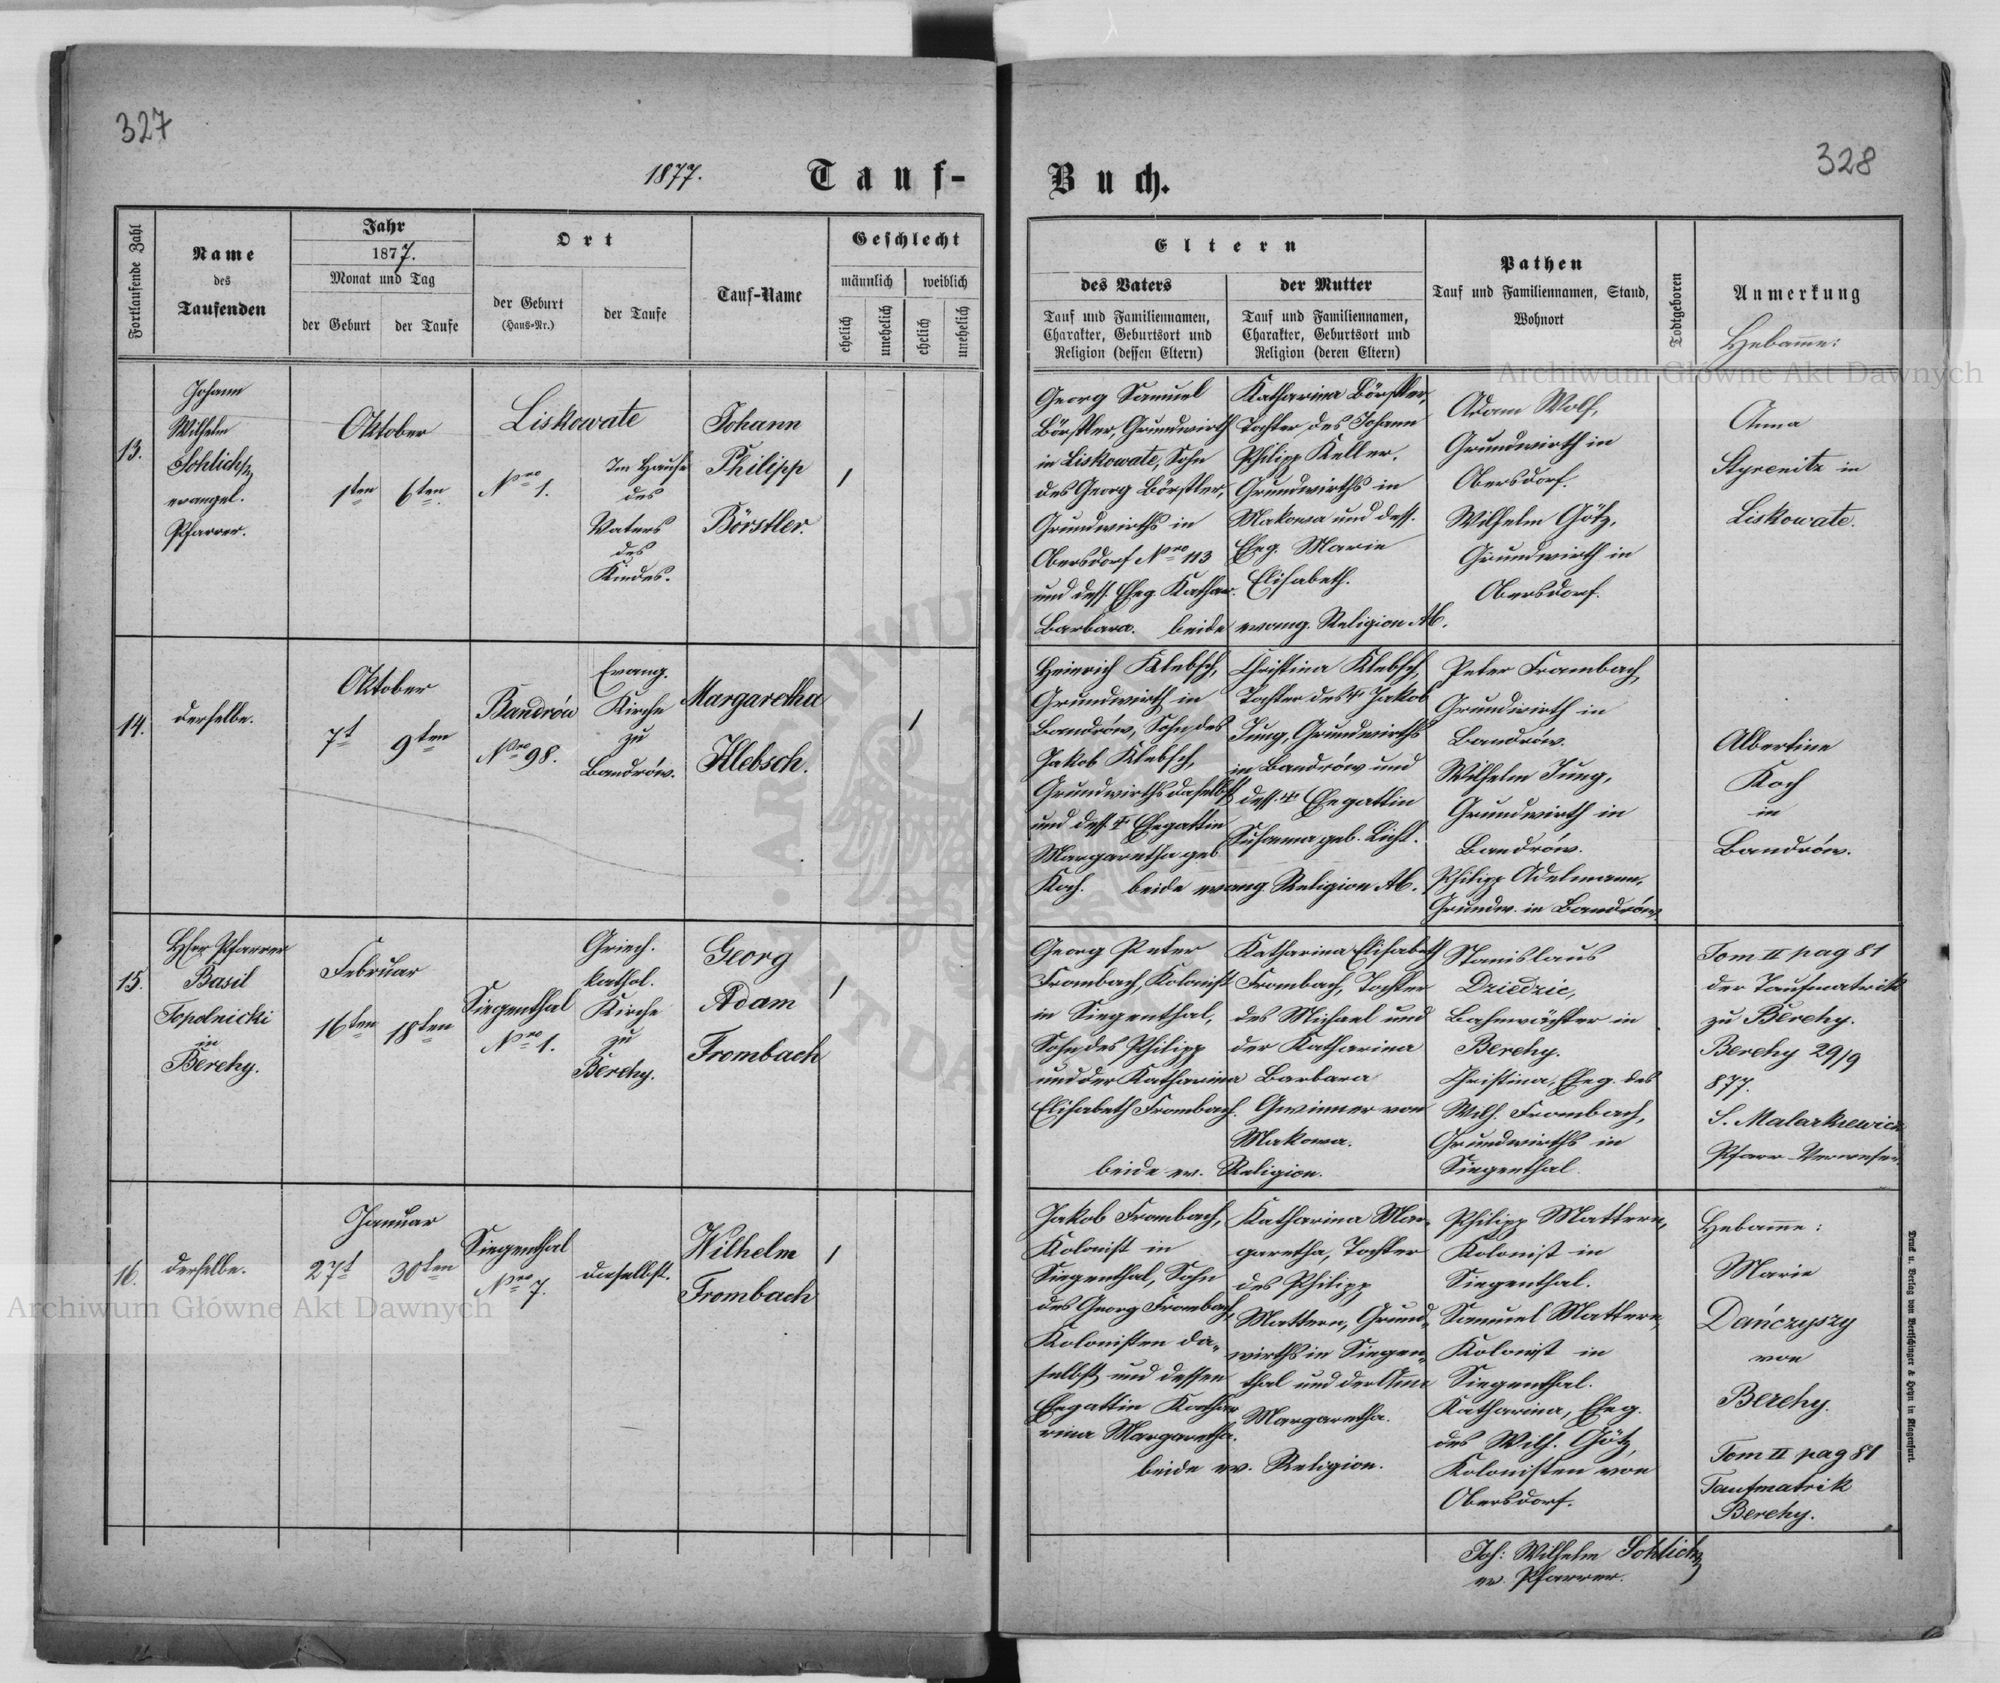 327
1877.
Tauf-
Buch.
328
Fortlaufende Zahl
Name
des
Taufenden
Jahr
1877.
Monat und Tag
der Geburt
der Taufe
Ort
der Geburt
(Haus-Nr.)
der Taufe
Tauf-Name
Geschlecht
männlich
weiblich
ehelich
unehelich
ehelich
unehelich
Eltern
des Vaters
Tauf und Familiennamen,
Charakter, Geburtsort und
Religion (dessen Eltern)
der Mutter
Tauf und Familiennamen,
Charakter, Geburtsort und
Religion (deren Eltern)
Pathen
Tauf und Familiennamen, Stand,
Wohnort
Todtgeboren
Anmerkung
Hebamme:
13.
Johann
Wilhelm
evangel.
Pfarrer.
Oktober
1ten
6ten
Liskowate
Nro 1.
Im Hause
des
Vaters
des
Kindes.
Johann
Philipp
Börstler.
1
Georg Samuel
Börstler, Grundwirth
in Liskowate, Sohn
des Georg Börstler,
Grundwirths in
Obersdorf Nro 113
und dess. Eheg. Kathar.
Barbara.
Katharina Börstler,
Tochter des Johann
Philipp Keller,
Grundwirths in
Makowa und dess.
Eheg. Marie
Elisabeth.
beide evang. Religion AC.
Adam Wolf,
Grundwirth in
Obersdorf.
Wilhelm Götz,
Grundwirth in
Obersdorf.
Anna
Styrenitz in
Liskowate.
14.
derselbe.
Oktober
7t
9ten
Bandrów
Nro 98.
Evang.
Kirche
zu
Bandrów.
Margaretha
Klebsch.
1
Heinrich Klebsch,
Grundwirth in
Bandrów, Sohn des
Jakob Klebsch,
Grundwirths daselbst
und dess. † Ehegattin
Margaretha geb.
Koch.
Christina Klebsch,
Tochter des † Jakob
Jung, Grundwirths
in Bandrów und
dess. † Ehegattin
Susanna geb. Licht.
beide evang. Religion AC.
Peter Frambach,
Grundwirth in
Bandrów.
Wilhelm Jung,
Grundwirth in
Bandrów.
Philipp Adelmann,
Grundw. in Bandrów.
Albertine
Koch
in
Bandrów.
15.
Pfarrer
Basil
Topolnicki
in
Berehy.
Februar
16ten
18ten
Siegenthal
Nro 1.
Griech.
kathol.
Kirche
zu
Berehy.
Georg
Adam
Frombach
1
Georg Peter
Frombach, Kolonist
in Siegenthal,
Sohn des Philipp
und der Katharina
Elisabeth Frombach.
Katharina Elisabeth
Frombach, Tochter
des Michael und
der Katharina
Barbara
Gwinner von
Makowa.
beide ev. Religion.
Stanislaus
Dziedzic,
Bahnwächter in
Berehy.
Christina, Eheg. des
Wilh. Frombach,
Grundwirths in
Siegenthal.
Tom II pag 81
der Taufmatrik
zu Berehy.
Berehy 29/9
877.
S. Malarkiewicz
Pfarr-Verweser.
16.
derselbe.
Januar
27t
30ten
Siegenthal
Nro 7.
daselbst.
Wilhelm
Frombach
1
Jakob Frombach,
Kolonist in
Siegenthal, Sohn
des Georg Frombach,
Kolonisten da-
selbst und dessen
Ehegattin Katha-
rina Margaretha.
Katharina Mar-
garetha, Tochter
des Philipp
Mattern, Grund-
wirths in Siegen-
thal und der Anna
Margaretha.
beide ev. Religion.
Philipp Mattern,
Kolonist in
Siegenthal.
Samuel Mattern,
Kolonist in
Siegenthal.
Katharina, Eheg.
des Wilh. Götz,
Kolonisten von
Obersdorf.
Hebamme:
Marie
Dańczyszy
von
Berehy.
Tom II pag 81
Taufmatrik
Berehy.
Joh: Wilhelm
ev. Pfarrer.
Druck u. Verlag von Bertschinger & Heyn in Klagenfurt.
Archiwum Główne Akt Dawnych
Archiwum Główne Akt Dawnych